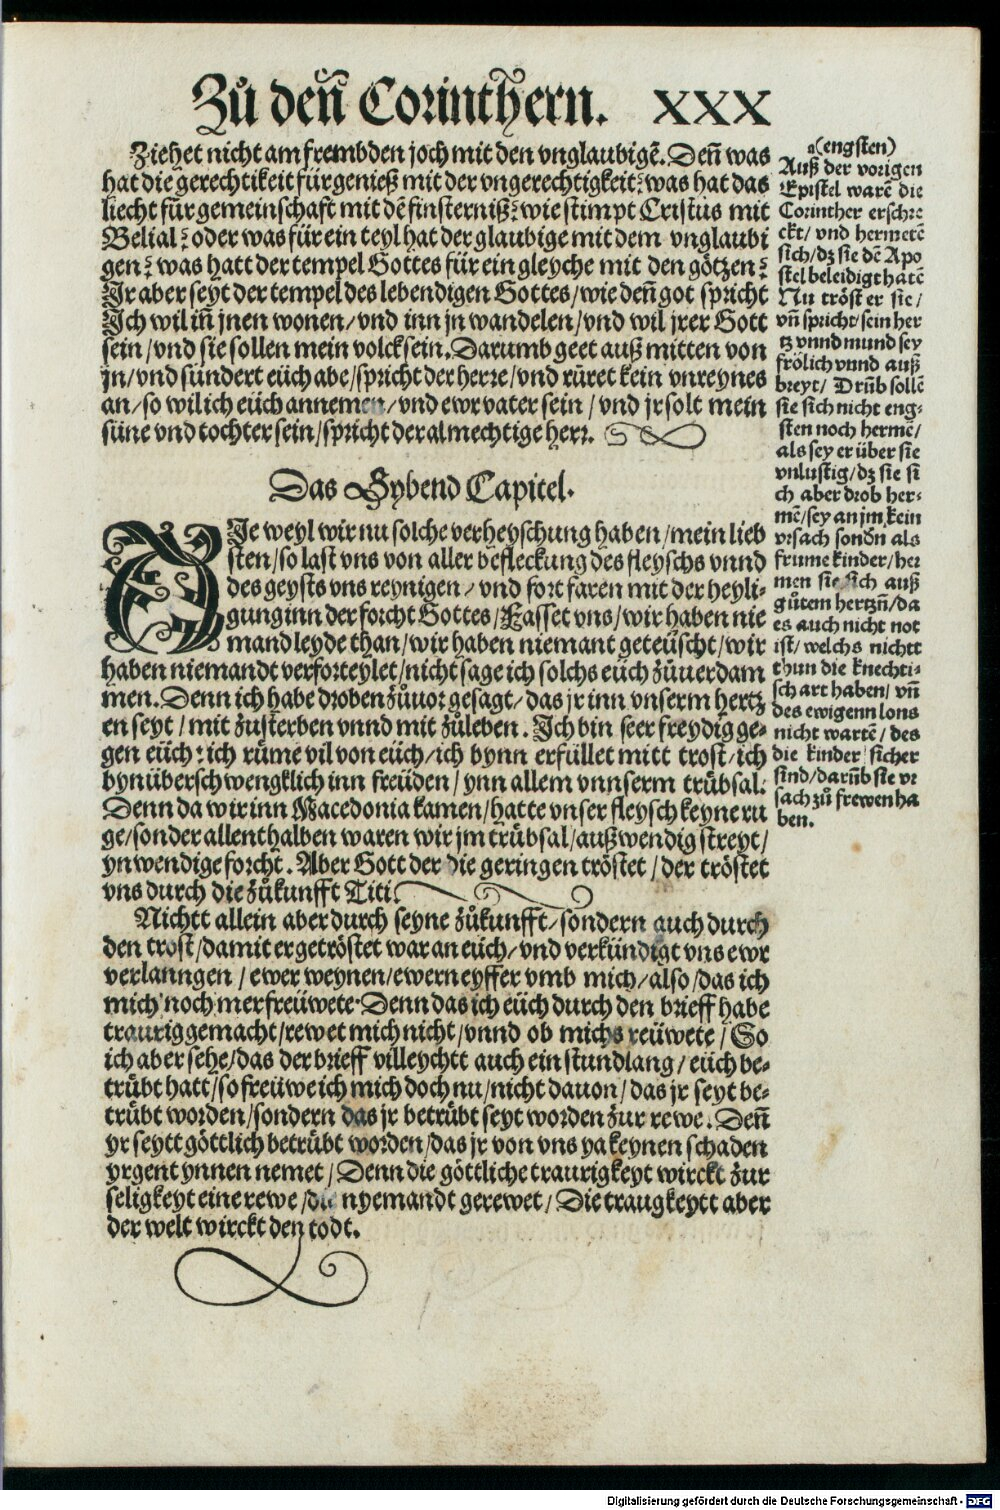 Zů den̄ Corinthern. XXX
Ziehet nicht am frembden joch mit den vnglaubigē. Den̄ was
hat die gerechtikeit für genieß mit der vngerechtigkeit? was hat das
liecht für gemeinschaft mit dē finsterniß? wie stimpt Cristus mit
Belial? oder was für ein teyl hat der glaubige mit dem vnglaubi
gen? was hatt der tempel Gottes für ein gleyche mit den götzen?
Ir aber seyt der tempel des lebendigen Gottes/ wie den̄ got spricht
Ich wil in̄ jnen wonen/ vnd inn jn wandelen/ vnd wil jrer Gott
sein/ vnd sie sollen mein volck sein. Darumb geet auß mitten von
jn/ vnd sündert eüch abe/ spricht der herre/ vnd rüret kein vnreynes
an/ so wil ich eüch annemen/ vnd ewr vater sein/ vnd jr solt mein
süne vnd tochter sein/ spricht der almechtige herr.
Das Sybend Capitel.
DIe weyl wir nu solche verheyschung haben/ mein lieb
sten/ so last vns von aller befleckung des fleyschs vnnd
des geysts vns reynigen/ vnd fort faren mit der heyli-
gung inn der forcht Gottes/ Fasset vns/ wir haben nie
mand leyde than/ wir haben niemant geteüscht/ wir
haben niemandt verforteylet/ nicht sage ich solchs eüch zůuerdam
men. Denn ich habe droben zůuor gesagt/ das jr inn vnserm hertz
en seyt/ mit zusterben vnnd mit zůleben. Ich bin seer freydig ge-
gen eüch: ich rüme vil von eüch/ ich bynn erfüllet mitt trost/ ich
byn überschwengklich inn freüden/ ynn allem vnnserm trübsal.
Denn da wir inn Macedonia kamen/ hatte vnser fleysch keyne ru
ge/ sonder allenthalben waren wir jm trübsal/ außwendig streyt/
ynwendige forcht. Aber Gott der die geringen tröstet/ der tröstet
vns durch die zůkunfft Titi.
Nichtt allein aber durch seyne zůkunfft/ sondern auch durch
den trost/ damit er getröstet war an eüch/ vnd verkündigt vns ewr
verlanngen/ ewer weynen/ ewern eyffer vmb mich/ also/ das ich
mich noch mer freüwete. Denn das ich eüch durch den brieff habe
traurig gemacht/ rewet mich nicht/ vnnd ob michs reüwete/ So
ich aber sehe/ das der brieff villeychtt auch ein stundlang/ eüch be-
trübt hatt/ so freüwe ich mich doch nu/ nicht dauon/ das jr seyt be-
trübt worden/ sondern das jr betrübt seyt worden zur rewe. Den̄
yr seytt göttlich betrübt worden/ das jr von vns ya keynen schaden
yrgent ynnen nemet/ Denn die göttliche traurigkeyt wirckt zur
seligkeyt eine rewe/ die nyemandt gerewet/ Die traugkeytt aber
der welt wirckt den todt.
a(engsten)
Auß der vorigen
Epistel warē die
Corinther erschre
ckt/ vnd hermetē
sich/ dz sie dē Apo
stel beleidigt hatē
Nu tröst er sie/
vn̄ spricht/ sein her
tz vnnd mund sey
frölich vnnd auß
breyt/ Drüb sollē
sie sich nicht eng-
sten noch hermē/
als sey er über sie
vnlustig/ dz sie si
ch aber drob her-
mē/ sey an jm kein
vrsach sondn̄ als
frume kinder/ her
men sie sich auß
gůtem hertzn̄/ da
es auch nicht not
ist/ welchs nichtt
thun die knechti-
sch art haben/ vn̄
des ewigenn lons
nicht wartē/ des
die kinder sicher
sind/ darüb sie vr
sach zů frewen ha
ben.
Digitalisierung gefördert durch die Deutsche Forschungsgemeinschaft - DFG